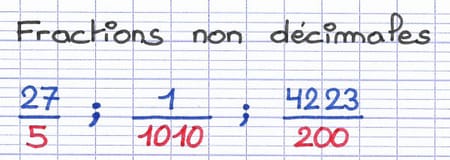 Fractions non décimales
27/5 ; 1/1010 ; 4223/200